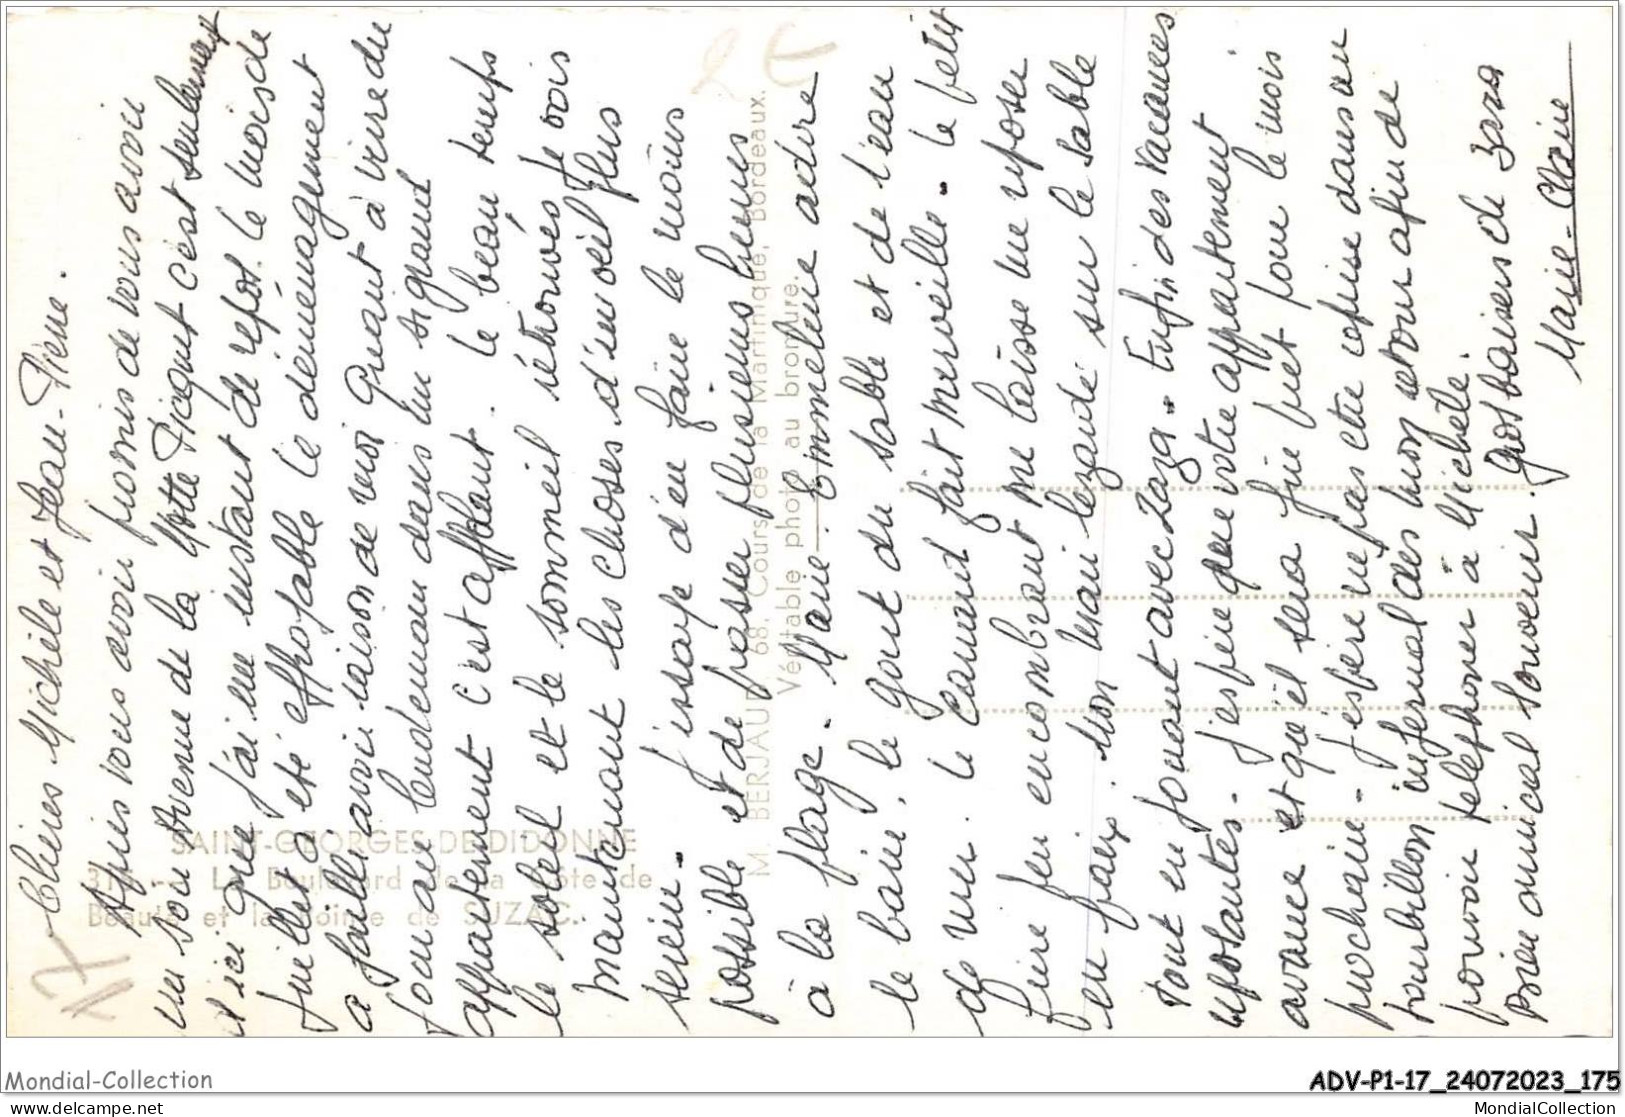 Chères Michèle et Jean-Pierre.
Après vous avoir promis de vous avoir
vu son Avenue de la Motte Picquet c'est seulement
d'ici que j'ai un instant de repos. le mois de
juillet a été effroyable le déménagement
a fallu avoir raison de moi Quant à vivre du
jour au lendemain dans un si grand
appartement c'est affolant. le beau temps
le soleil et le sommeil retrouvés je vois
maintenant les choses d'un oeil plus
serein. J'essaye d'en faire le moins
possible et de passer plusieurs heures
à la plage. Marie-Emmeline adore
le bain, le goût du sable et de l'eau
de mer. le Canard fait merveille. le petit
frère peu encombrant me laisse me reposer
en paix. Mon Mari lézarde sur le sable
tout en jouant avec Zaza. Enfin des vacances
reposantes. J'espère que votre appartement
avance et qu'il sera fini prêt pour le mois
prochain. J'espère ne pas être reprise dans un
tourbillon infernal dès mon retour afin de
pouvoir telephoner à Michèle.
Bien amical souvenir. Gros baisers de Zaza
Marie-Claire
17
2 €
SAINT-GEORGES-DE-DIDONNE
Le Boulevard de la Côte de
Beauté et la Pointe de SUZAC.
M. BERJAUD, 68, Cours de la Martinique, Bordeaux.
Véritable photo au bromure.
Mondial-Collection
ADV-P1-17_24072023_175
delcampe.net
MondialCollection